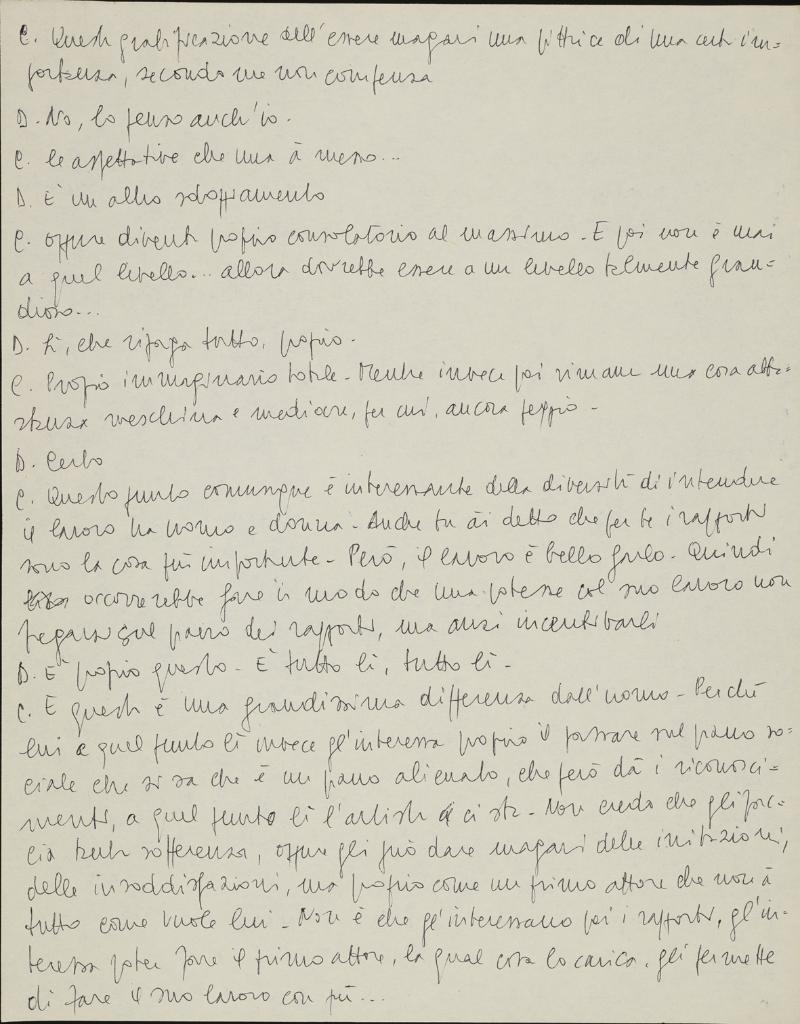 C. Questa gratificazione dell'essere magari una pittrice di una certa im=
portanza, secondo me non compensa
D. No, lo penso anch'io.
C. le aspettative che una à messo...
D. È un altro sdoppiamento
C. oppure diventa proprio consolatorio al massimo. E poi non è mai
a quel livello... allora dovrebbe essere a un livello talmente gran=
dioso...
D. Sì, che ripaga tutto, proprio.
C. Proprio immaginario totale. Mentre invece poi rimane una cosa abba=
stanza meschina e mediocre, per cui, ancora peggio.
D. Certo
C. Questo punto comunque è interessante della diversità di intendere
il lavoro tra uomo e donna. Anche tu ài detto che per te i rapporti
sono la cosa più importante. Però, il lavoro è bello farlo. Quindi
occorrerebbe fare in modo che una potesse col suo lavoro non
pagarsi sul piano dei rapporti, ma anzi incentivarli
D. E' proprio questo. E' tutto lì, tutto lì.
C. E questa è una grandissima differenza dall'uomo. Perché
lui a quel punto lì invece gl'interessa proprio il passare sul piano so=
ciale che si sa che è un piano alienato, che però dà i riconosci=
menti, a quel punto lì l'artista ci sta. Non credo che gli fac=
cia tanta sofferenza, oppure gli può dare magari delle irritazioni,
delle insoddisfazioni, ma proprio come un primo attore che non à
tutto come vuole lui. Non è che gl'interessano poi i rapporti, gl'in=
teressa poter fare il primo attore, la qual cosa lo carica, gli permette
di fare il suo lavoro con più...